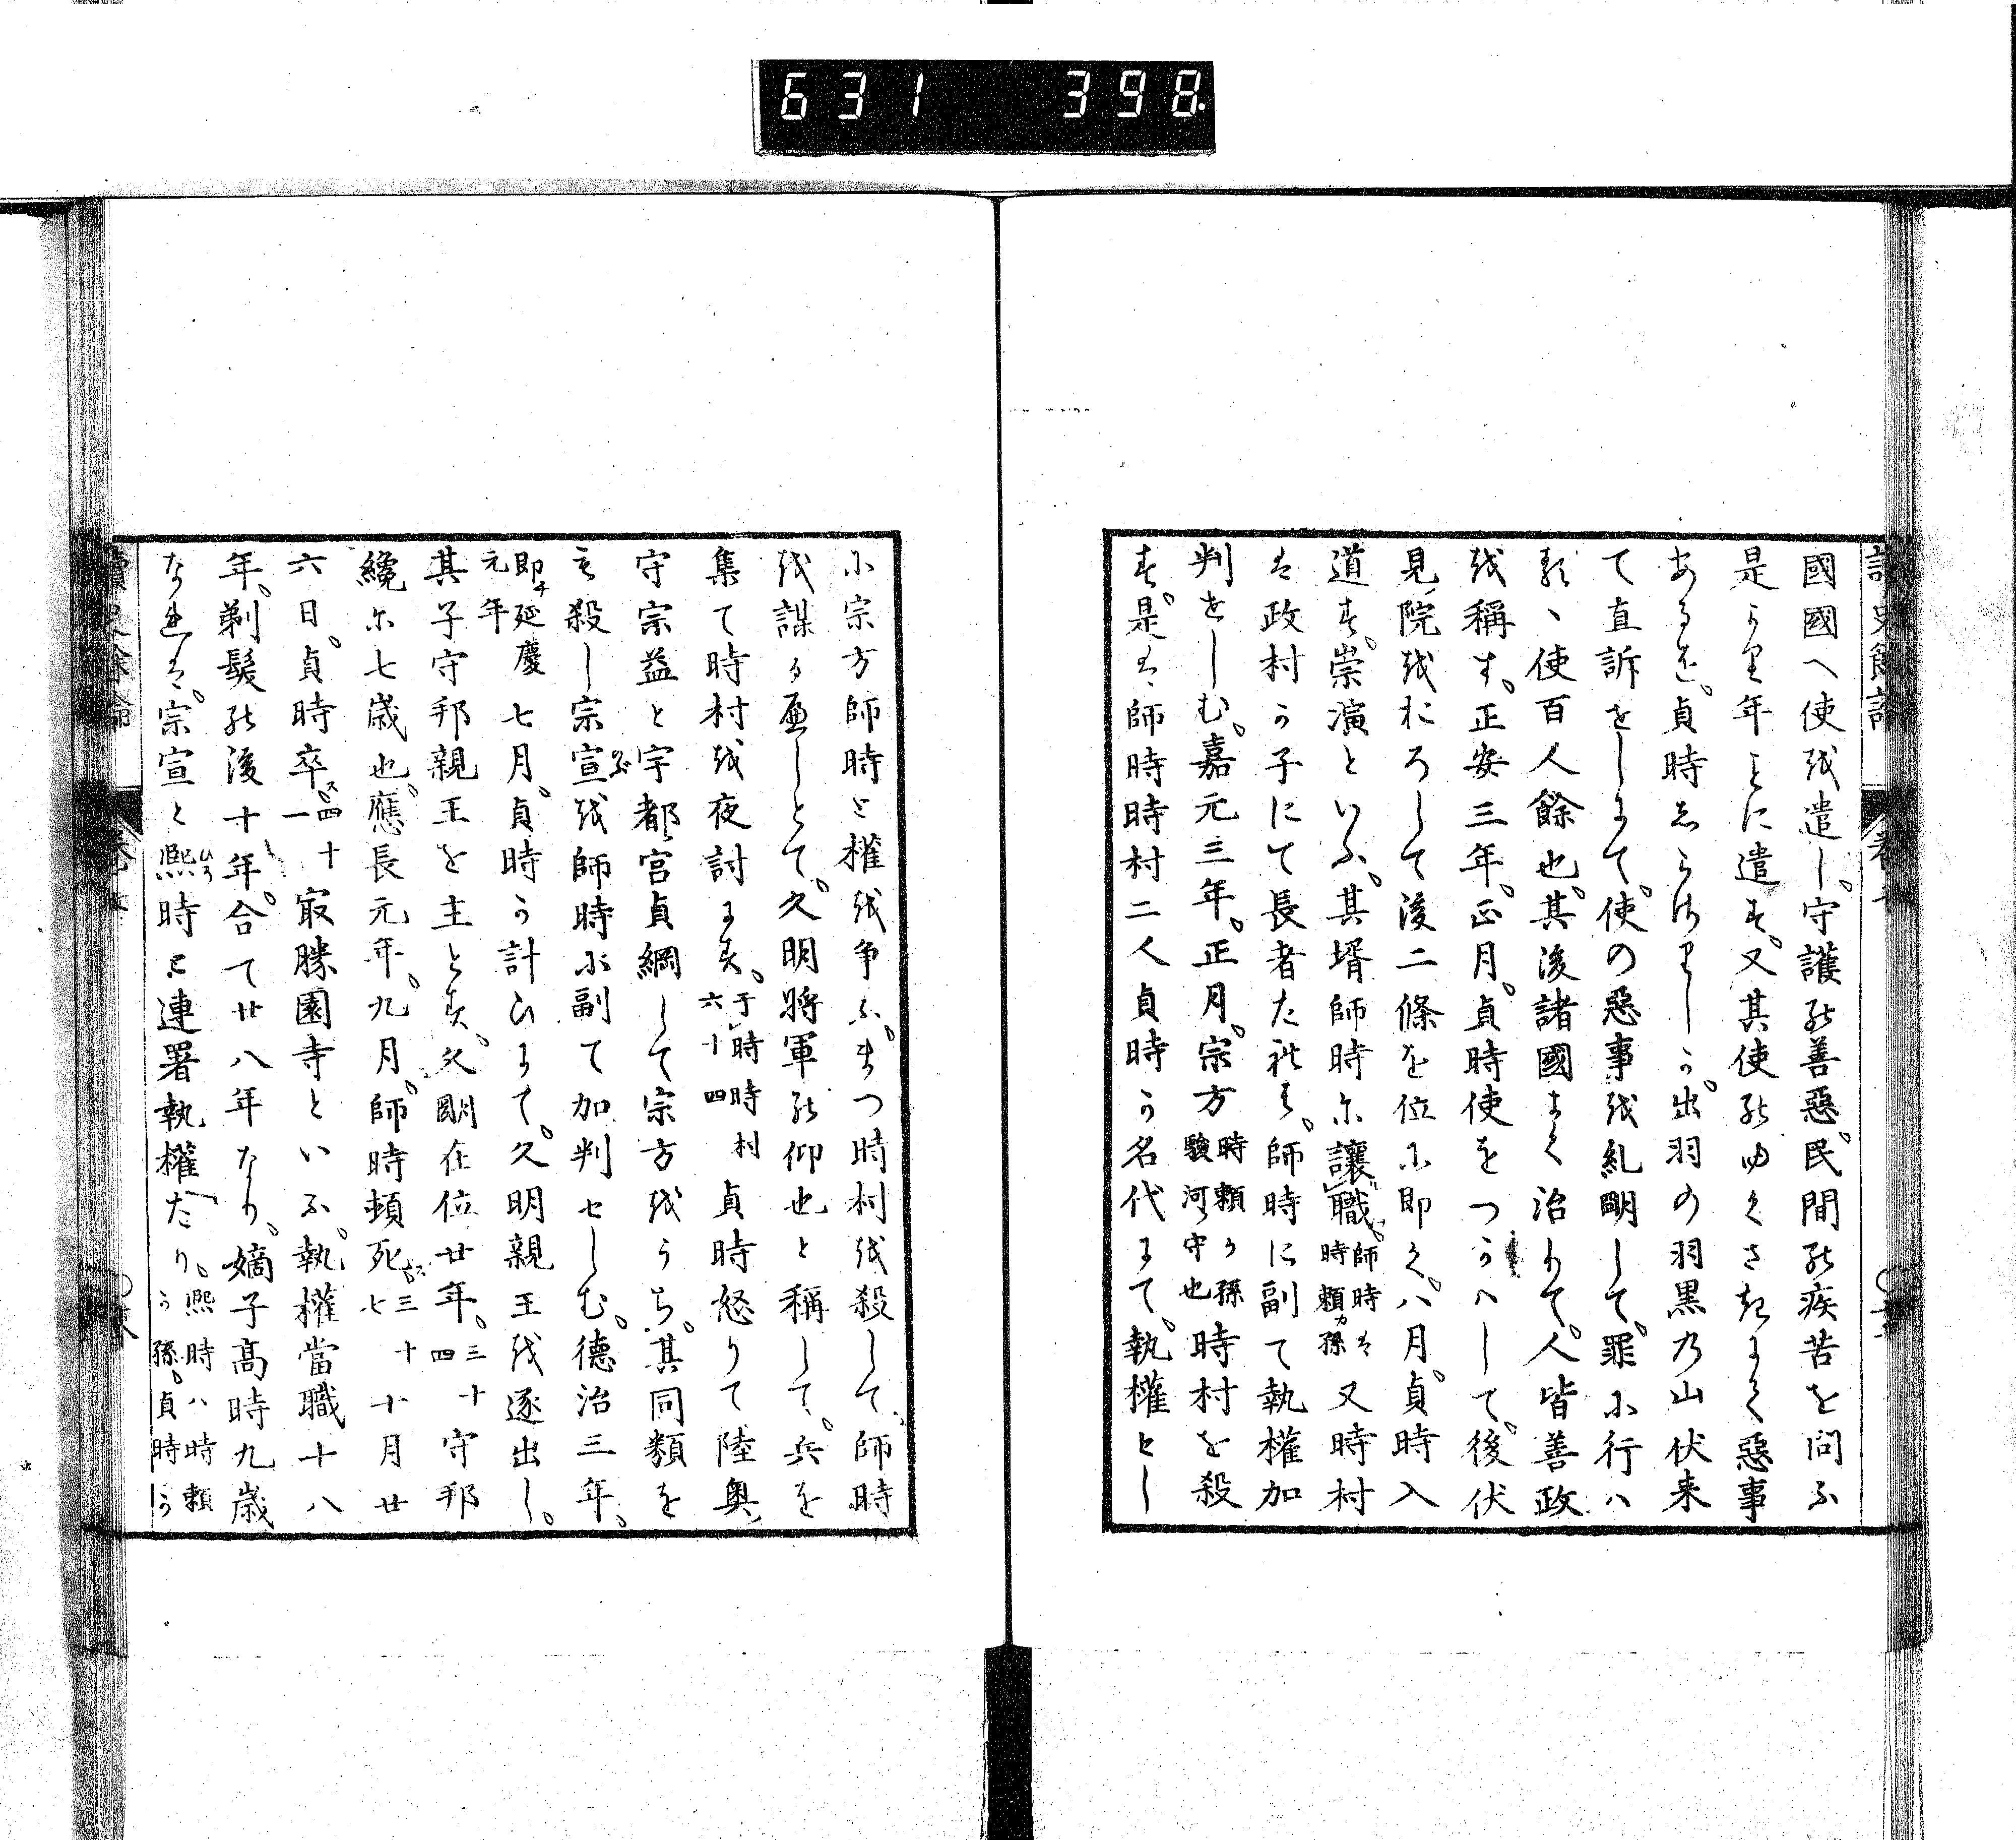 631 398.
國國へ使を遣し。守護の善惡。民間の疾苦を問ふ
是より年ことに遣す。又其使のゆくさきにて惡事
あるを。貞時しらさりしか。出羽の羽黒の山伏来
て直訴をしにて。使の惡事を糺明して。罪に行ハ
るゝ使百人餘也。其後諸國よく治りて。人皆善政
を稱す。正安三年。正月。貞時使をつかハして。後伏
見院をおろして後二條を位に即く。八月。貞時入
道す。崇演といふ。其壻師時に讓職。師時は時頼カ孫又時村
は政村か子にて長者たれは。師時に副て執權加
判をしむ。嘉元三年。正月。宗方時頼か孫駿河守也時村を殺
す。是は師時時村二人貞時か名代にて。執權とし
讀史餘論
卷
小宗方師時と權を争ふ。まつ時村を殺して。師時
を謀るへしとて。久明將軍の仰也と稱して。兵を
集て時村を夜討にす。于時時村六十四貞時怒りて陸奥
守宗益と宇都宮貞綱して宗方をうち。其同類を
も殺し宗宣を師時に副て加判せしむ。德治三年。
即チ延慶元年七月。貞時か計ひにて。久明親王を逐出し。
其子守邦親王を主とす。久明在位廿年。三十四守邦
纔に七歳也。應長元年。九月。師時頓死ス。三十七十月廿
六日。貞時卒ス。四十一最勝園寺といふ。執權當職十八
年。剃髮の後十年。合て廿八年なり。嫡子髙時九歳
なれは。宗宣と熙ひろ時と連署執權たり。熙時ハ時頼か孫。貞時か
讀史餘論